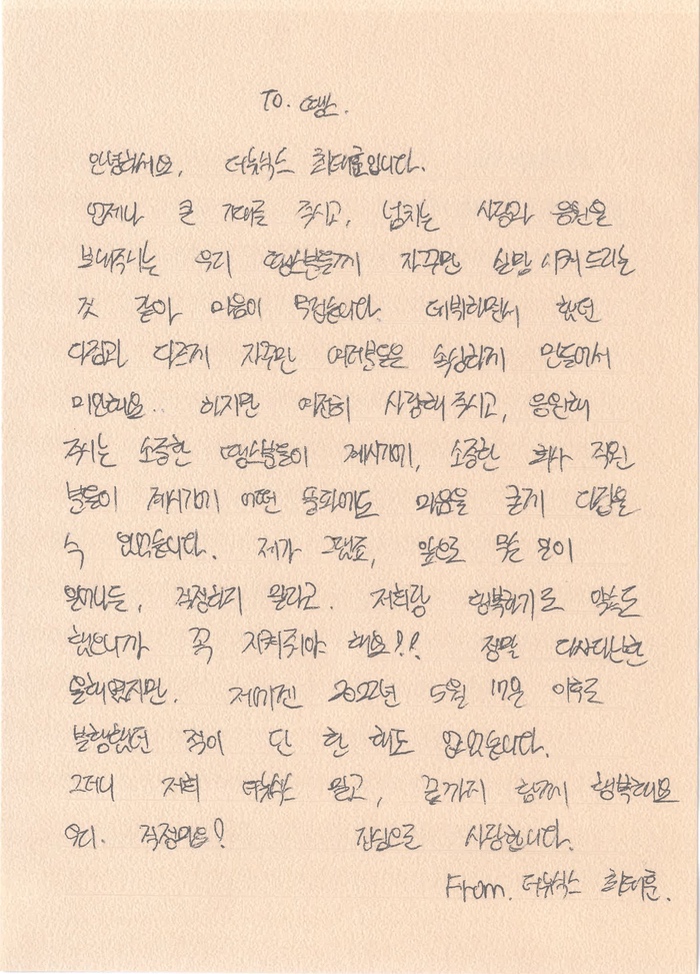 To. 땡스.
안녕하세요, 더뉴식스 최태훈입니다.
언제나 큰 기대를 주시고, 넘치는 사랑과 응원을
보내주시는 우리 땡스분들께 자꾸만 실망 시켜 드리는
것 같아 마음이 무겁습니다. 데뷔하면서 했던
다짐과 다르게 자꾸만 여러분들을 속상하게 만들어서
미안해요.. 하지만 여전히 사랑해 주시고, 응원해
주시는 소중한 땡스분들이 계시기에, 소중한 회사 직원
분들이 계시기에 어떤 풍파에도 마음을 굳게 다잡을
수 있었습니다. 제가 그랬죠, 앞으로 무슨 일이
일어나든, 걱정하지 말라고. 저희랑 행복하기로 약속도
했으니까 꼭 지켜줘야 해요!! 정말 다사다난한
올해였지만. 제게는 2022년 5월 17일 이후로
불행했던 적이 단 한 해도 없었습니다.
그러니 저희 더뉴식스 믿고, 끝까지 함께 행복해요
우리. 걱정마요! 진심으로 사랑합니다.
From. 더뉴식스 최태훈.